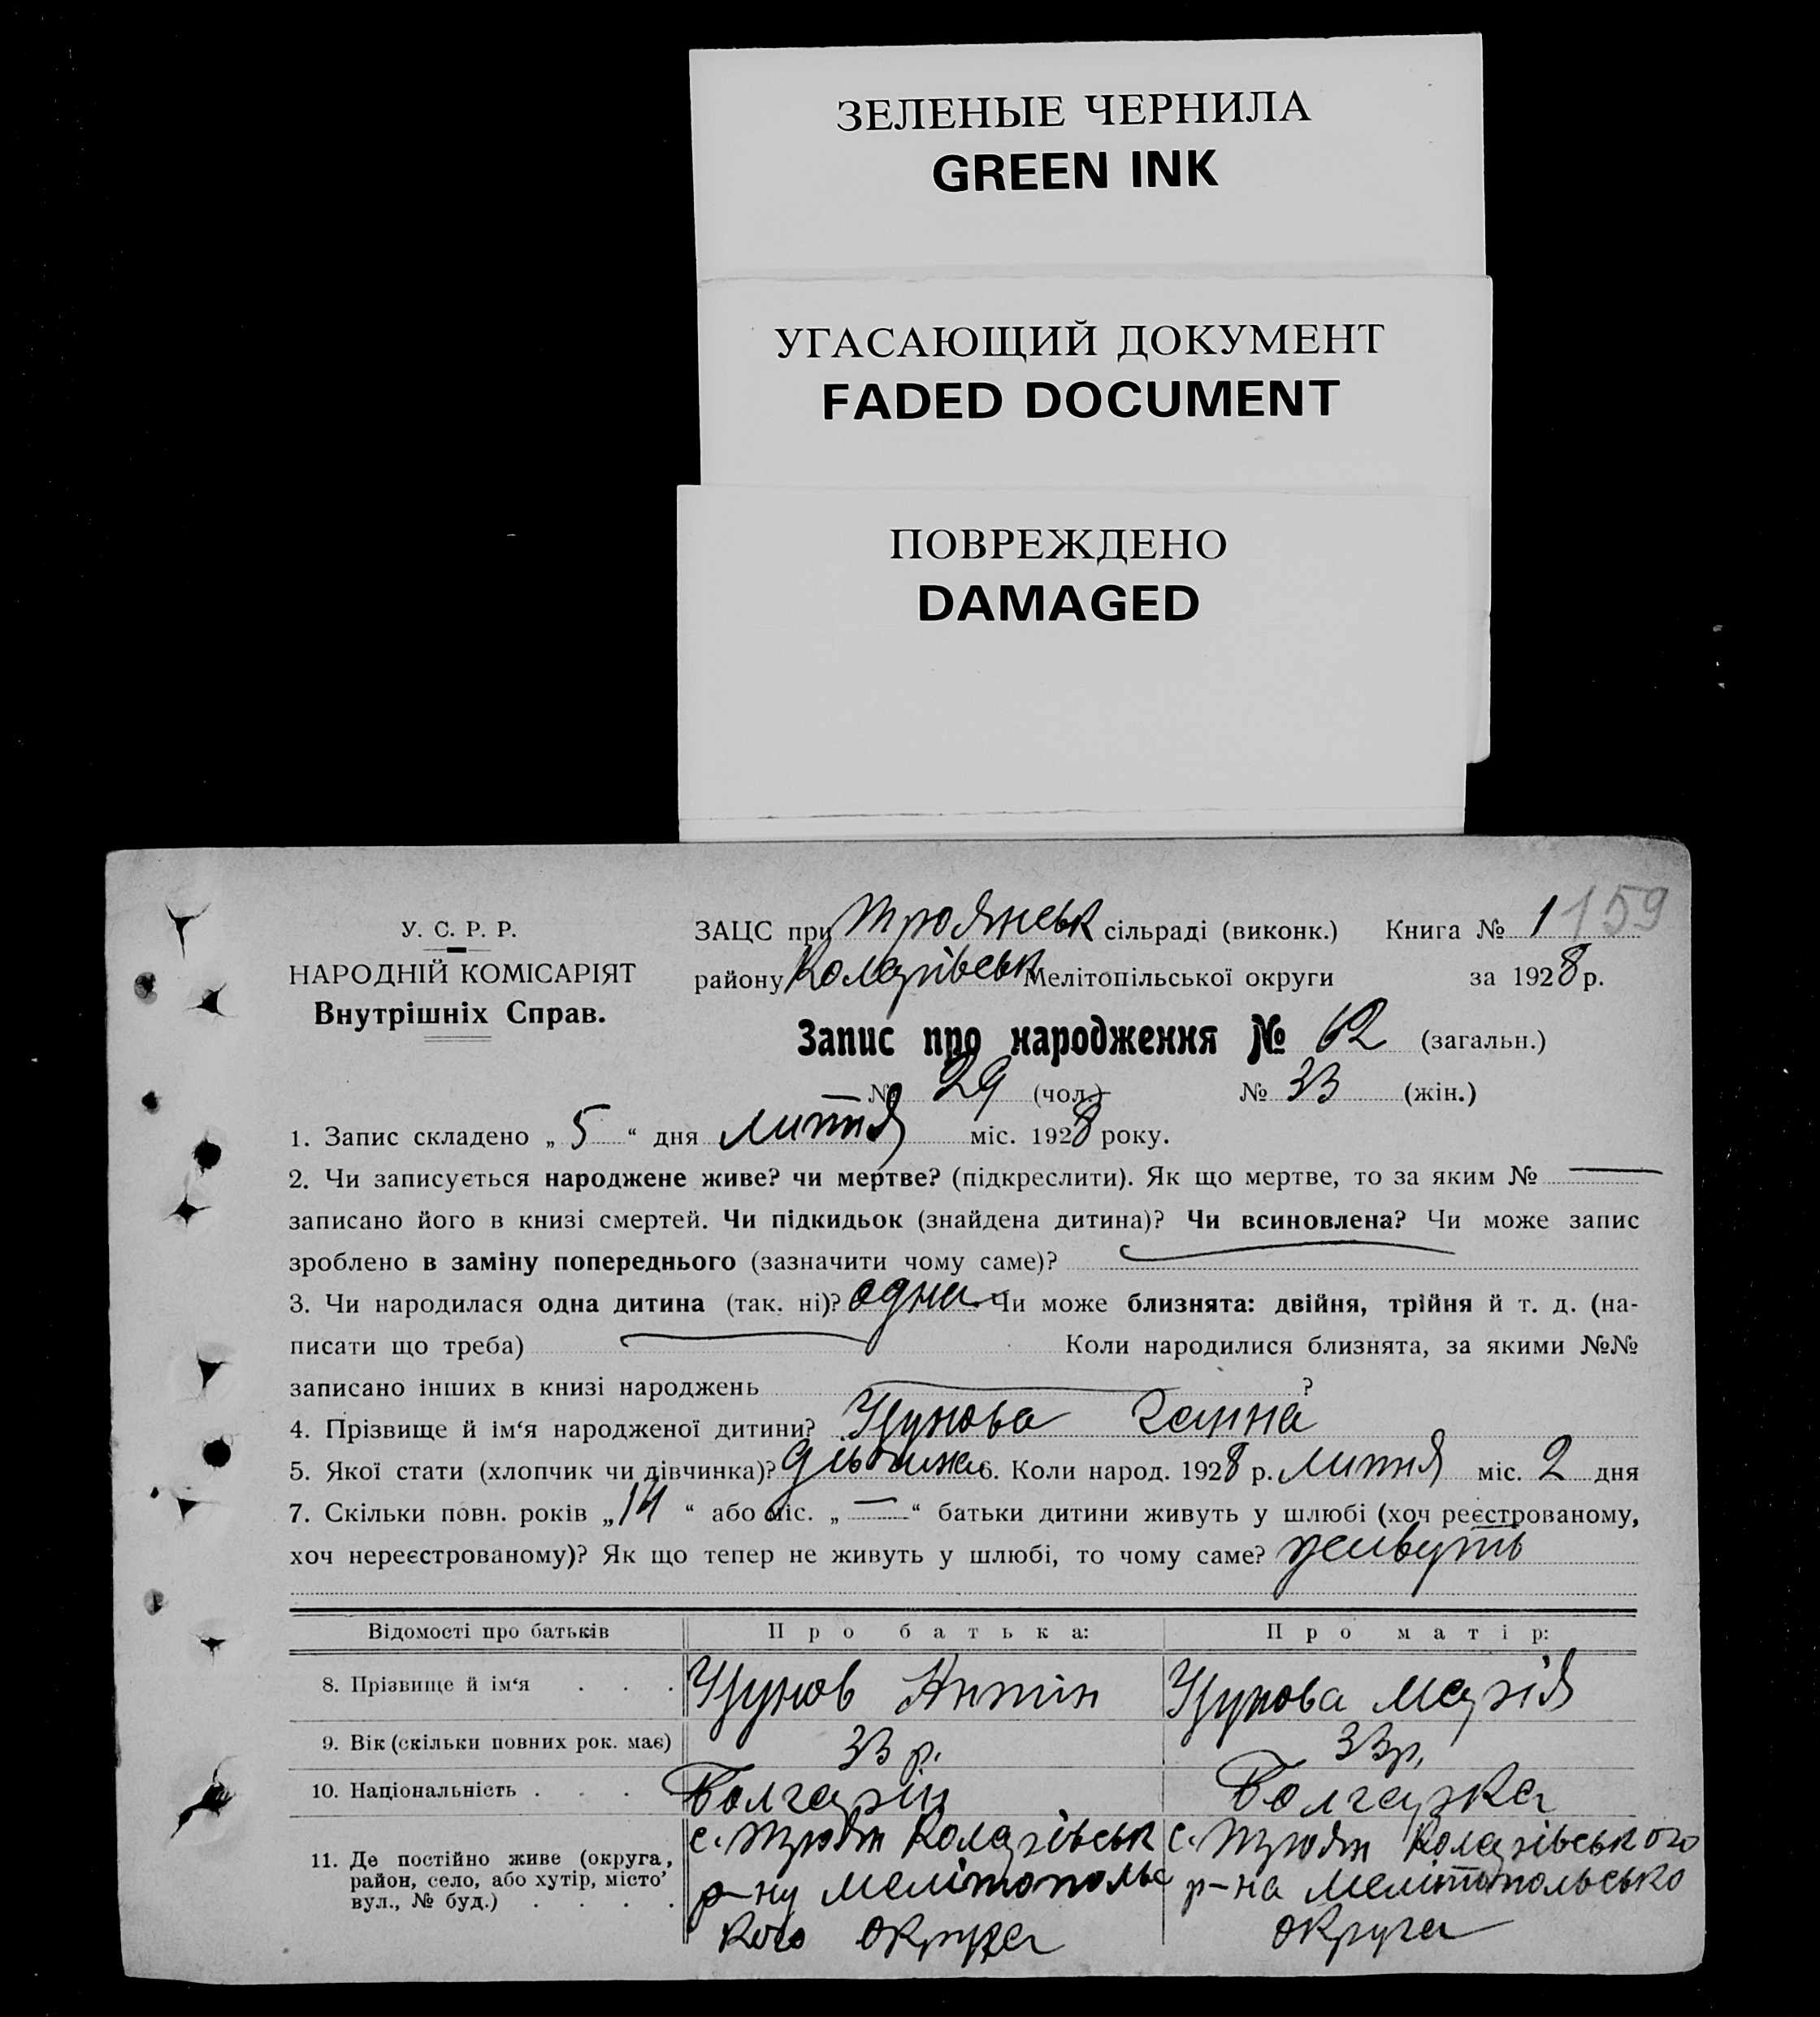 ЗЕЛЕНЫЕ ЧЕРНИЛА
GREEN INK
УГАСАЮЩИЙ ДОКУМЕНТ
FADED DOCUMENT
ПОВРЕЖДЕНО
DAMAGED
159
У. С. Р. Р.
НАРОДНІЙ КОМІСАРІЯТ
Внутрішніх Справ.
ЗАЦС при Троянськ сільраді (виконк.) Книга № 1
району Коларівськ Мелітопільської округи за 1928 р.
Запис про народження № 62 (загальн.)
№ 29 (чол.) № 33 (жін.)
1. Запис складено „ 5 “ дня липня міс. 1928 року.
2. Чи записується народжене живе? чи мертве? (підкреслити). Як що мертве, то за яким № —
записано його в книзі смертей. Чи підкидьок (знайдена дитина)? Чи всиновлена? Чи може запис
зроблено в заміну попереднього (зазначити чому саме)?
3. Чи народилася одна дитина (так. ні)? одна. Чи може близнята: двійня, трійня й т. д. (на-
писати що треба) Коли народилися близнята, за якими №№
записано інших в книзі народжень ?
4. Прізвище й ім‘я народженої дитини? Узунова Ганна
5. Якої стати (хлопчик чи дівчинка)? 6. Коли народ. 1928 р. липня міс. 2 дня
7. Скільки повн. років „ 14 “ або міс. „ — “ батьки дитини живуть у шлюбі (хоч реєстрованому,
хоч нереєстрованому)? Як що тепер не живуть у шлюбі, то чому саме? живуть
Відомості про батьків Про батька: Про матір:
8. Прізвище й ім‘я . . . Узунов Антін Узунова Марія
9. Вік (скільки повних рок. має) 33 р. 33 р.
10. Національність . . . Болгарін Болгарка
11. Де постійно живе (округа, район, село, або хутір, місто’ вул., № буд.) . . . .
с. Троян Коларівськ
р-ну Мелітопольс
кого округа
с. Троян Коларівського
р-на Мелітопольсько
округа